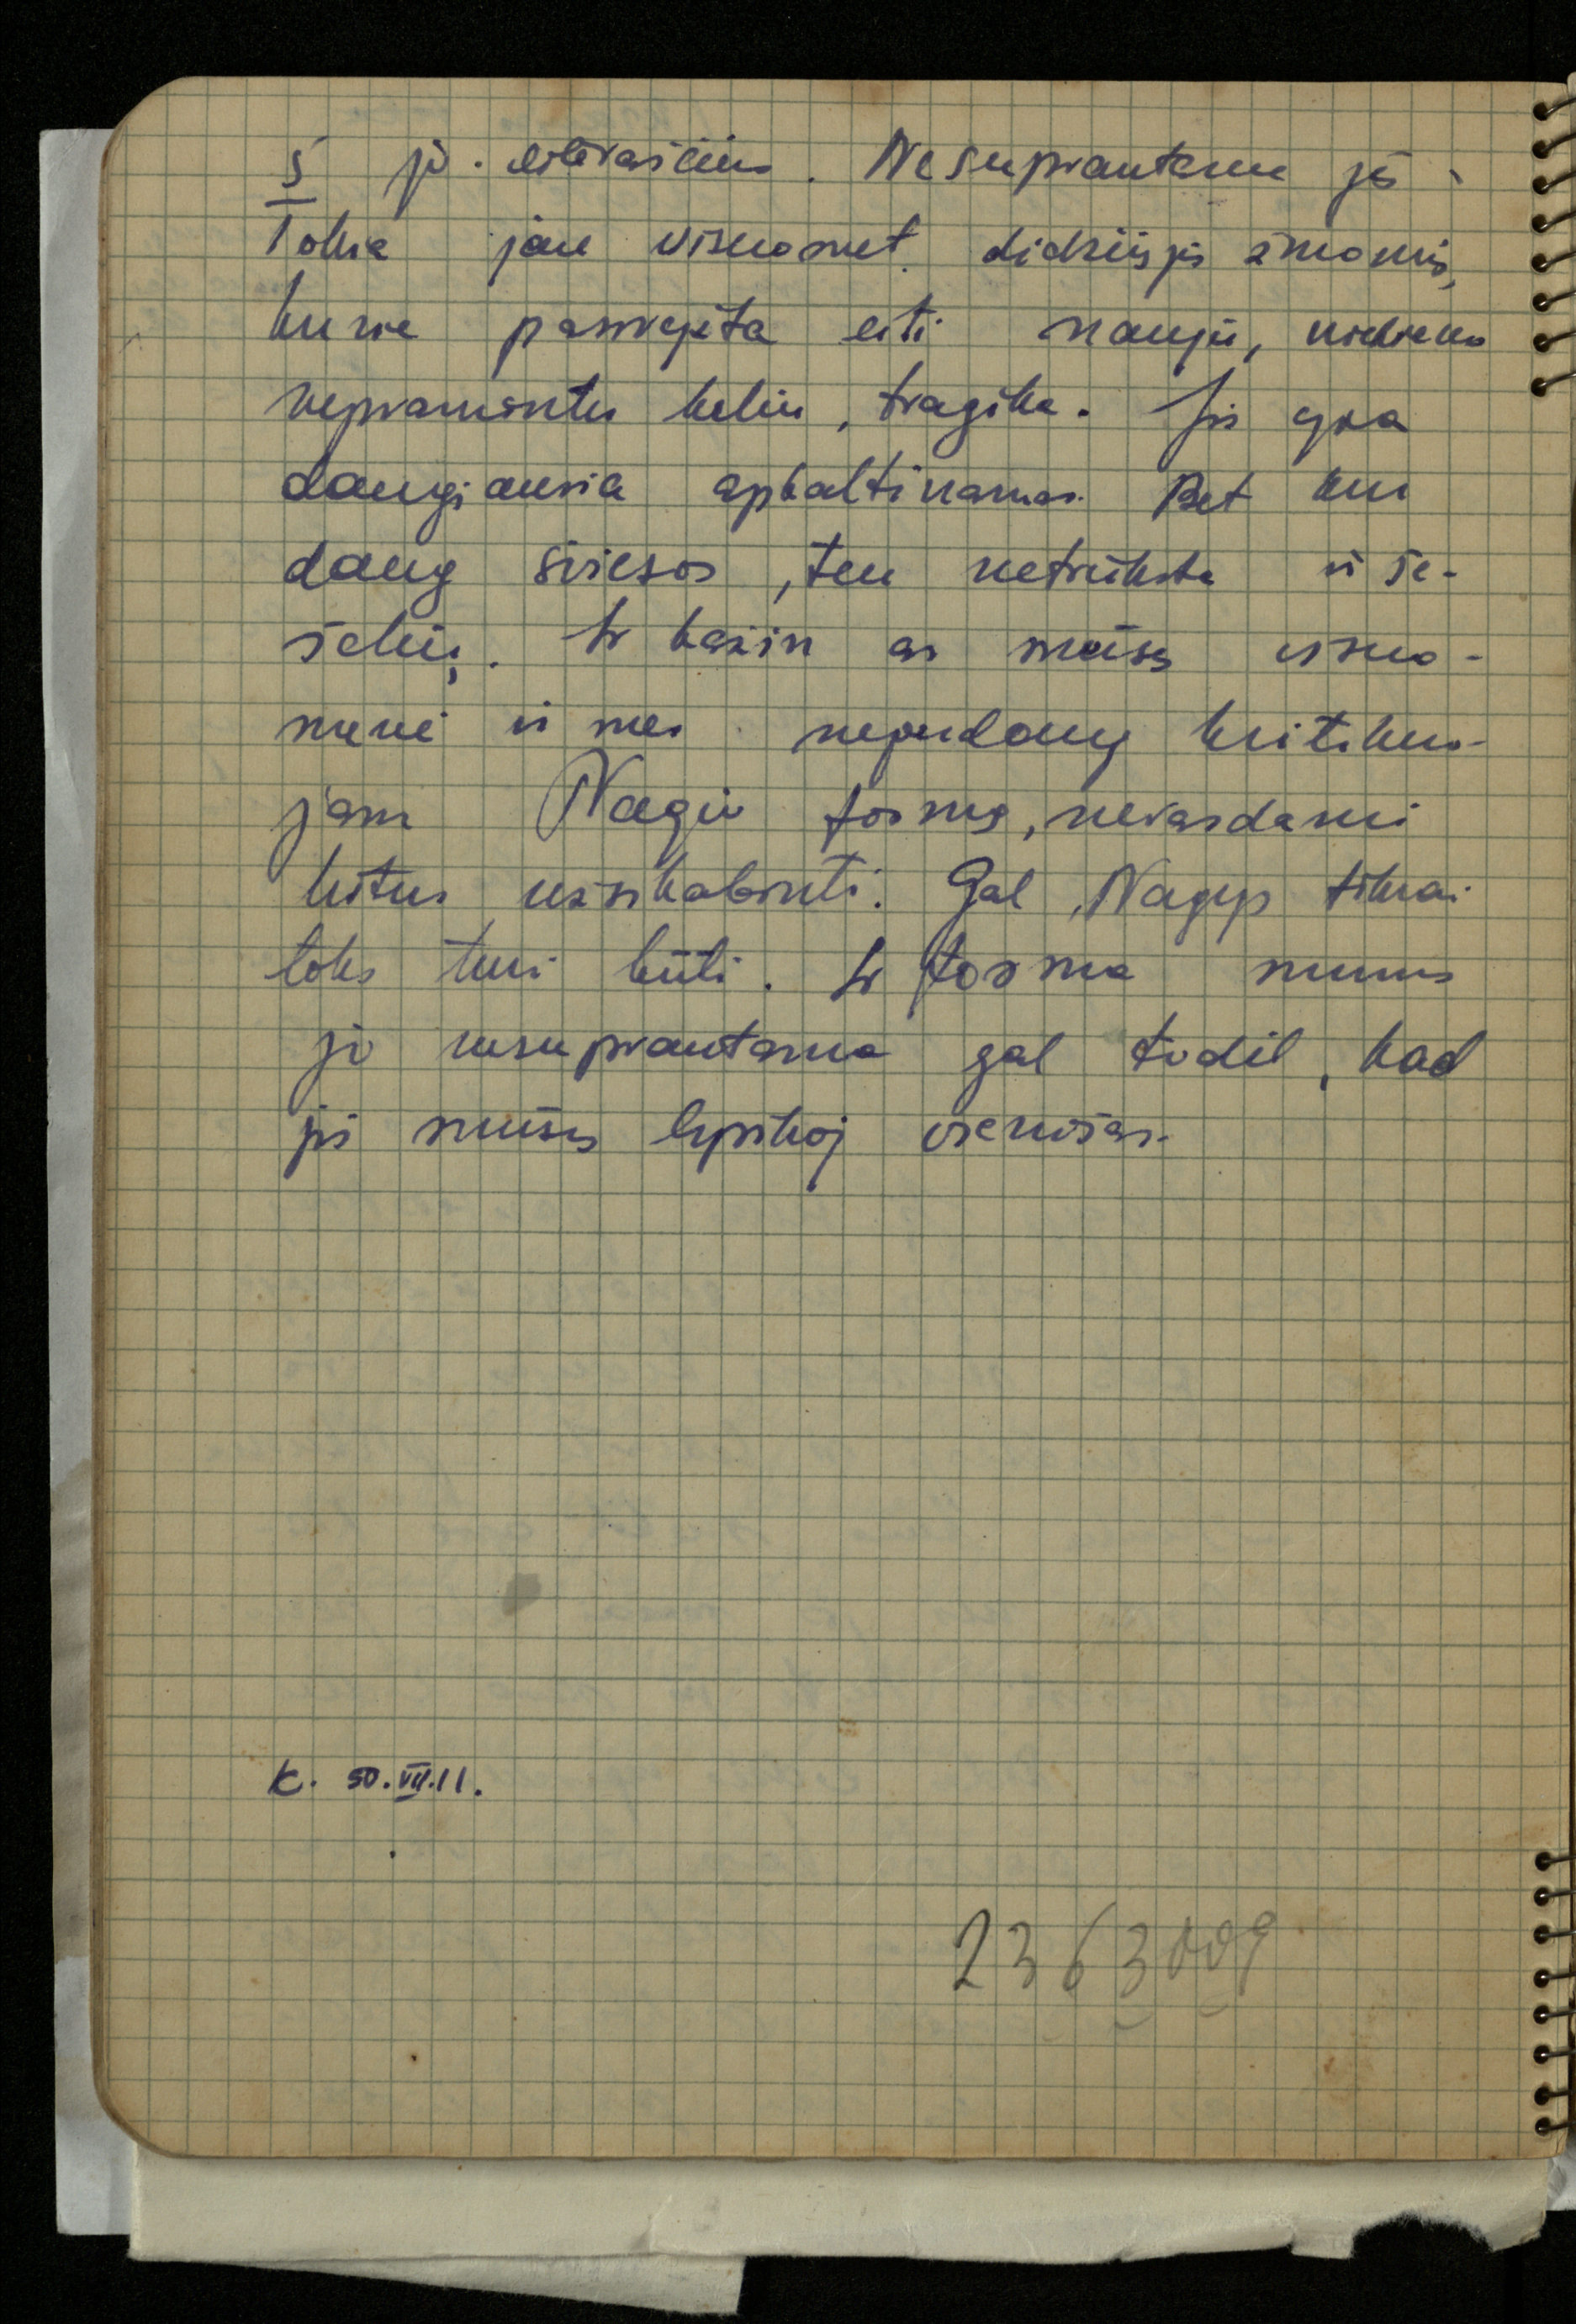 5 jo eilėraščius. Nesuprantame jos.
Tokia jau visuomet didžiųjų žmonių,
kurie pasiryžta eiti nauju, niekieno
nepramintu keliu, tragika. Jis yra
daugiausia apkaltinamas. Bet kur
daug šviesos, ten netrūksta ir še-
šėlių. Ir kažin ar mūsų visuo-
menė ir mes neperdaug kritikuo-
jam Nagio formą, nerasdami
kitur užsikabinti. Gal Nagys tikrai
toks turi būti. Ir forma mums
jo nesuprantama gal todėl, kad
jis mūsų lyrikoj vienišas.
K. 50.VII.11.
2363009